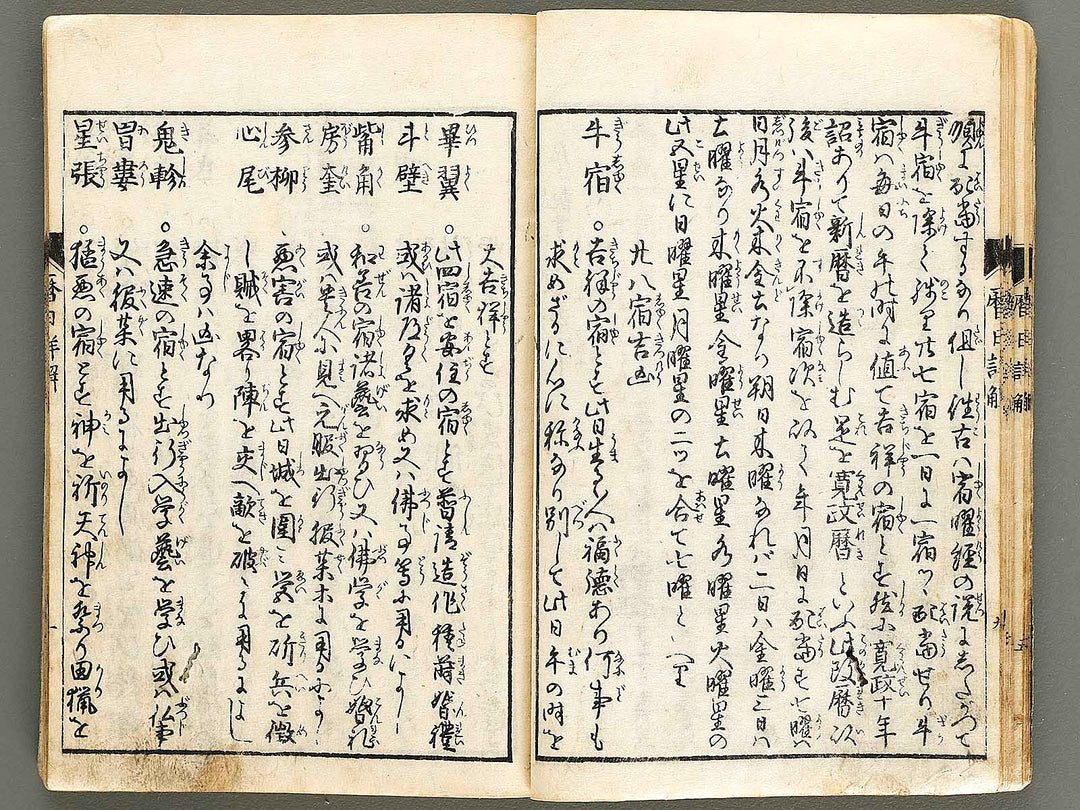 順に配當するなり但し往古八宿曜經の説にしたがつて
牛宿を除く残り廿七宿を一日に一宿ツヽ配當せり牛
宿ハ毎日の午の時に値て吉祥の宿とす然に寛政十年
詔ありて新暦を造らしむ是を寛政暦といふ此改暦以
後ハ牛宿を不除宿次を以て年月日に配當す七曜ハ
日月火水木金土なり朔日木曜なれバ二日ハ金曜三日ハ
土曜なり木曜星金曜星土曜星水曜星火曜星の
此五星に日曜星月曜星の二ツを合て七曜といへり
廿八宿吉凶
牛宿 ○吉祥の宿とす此日生る人ハ福徳あり何事も
求めざるに心に稱なり別して此日午の時を
大吉祥とす
畢翼
斗壁 ○此四宿を安住の宿とす普請造作種蒔婚禮
或ハ諸道具を求め又ハ佛事等に用るによし
觜角
房奎 ○和善の宿諸藝を習ひ又ハ佛学を学び婚礼
或ハ貴人に見へ元服出行振業木に用るによし
參柳
心尾 ○悪害の宿とす此日城を圍ミ営を斫兵を徴
し賊を畧り陣を交へ敵を破るに用るによし
余事ハ凶なり
鬼軫
胃婁 ○急速の宿とす出行入学藝を学ひ或ハ仏事
又ハ振業に用るによし
星張 ○猛悪の宿とす神を祈天神を祭り田猟を
暦日詳解